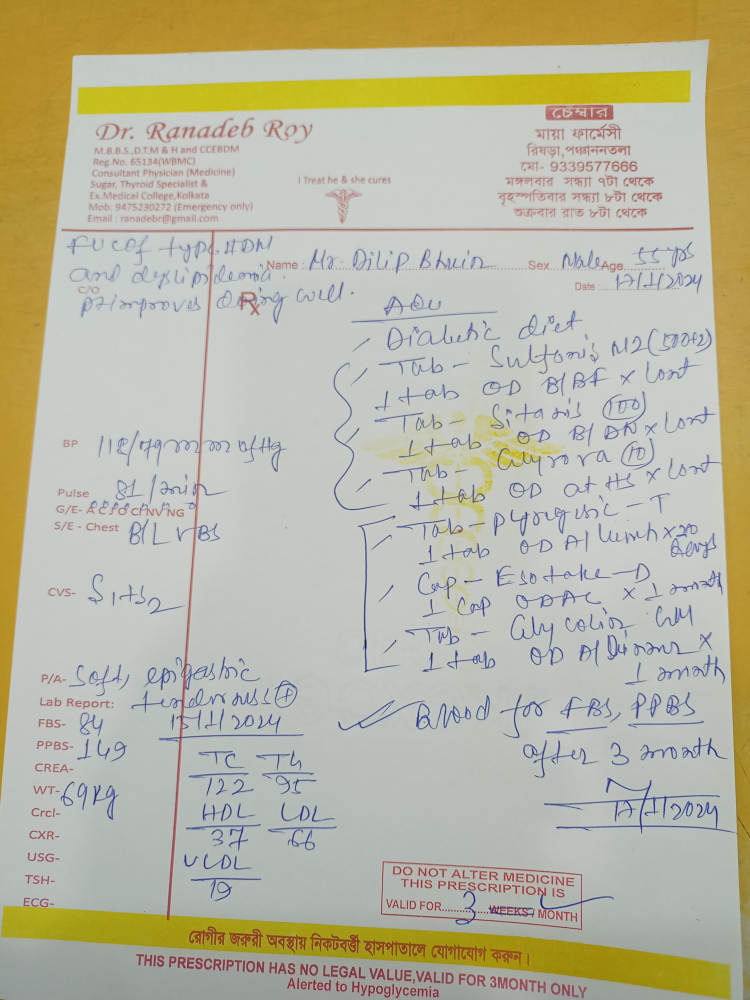 Dr. Ranadeb Roy
M.B.B.S.,D.T.M & H and CCEBDM
Reg.No. 65134(WBMC)
Consultant Physician (Medicine)
Sugar, Thyroid Specialist &
Ex.Medical College,Kolkata
Mob: 9475230272 (Emergency only)
Email : ranadebr@gmail.com
I Treat he & she cures
চেম্বার
মায়া ফার্মেসী
রিষড়া,পঞ্চাননতলা
মো- 9339577666
মঙ্গলবার সন্ধ্যা ৭টা থেকে
বৃহস্পতিবার সন্ধ্যা ৮টা থেকে
শুক্রবার রাত ৮টা থেকে
FUC of type II DM
and dyslipidemia.
C/O
Pt improves doing well.
Name : Mr. Dilip Bhuin Sex Male Age 55 yrs
Date : 17/1/2024
Rx
Adv
Diabetic diet
Tab - M2 (500+2)
1 tab OD B/BF x cont
Tab - (100)
1 tab OD B/DN x cont
Tab - (10)
1 tab OD at HS x cont
Tab - - T
1 tab OD A/Lunch x 20 days
Cap - - D
1 cap OD AC x 1 month
Tab - GM
1 tab OD A/Dinner x
1 month
Blood for FBS, PPBS
after 3 month
17/1/2024
BP 118/79 mm of Hg
Pulse 81/min
G/E-
S/E - Chest B/L VBS
CVS- S1+S2
P/A- Soft, epigastric
tenderness (+)
Lab Report:
15/1/2024
FBS- 84
PPBS- 149
CREA-
WT- 69kg
Crcl-
CXR-
USG-
TSH-
ECG-
TC TG
122 95
HDL LDL
37 66
VLDL
19
DO NOT ALTER MEDICINE
THIS PRESCRIPTION IS
VALID FOR 3 WEEKS / MONTH
রোগীর জরুরী অবস্থায় নিকটবর্ত্তী হাসপাতালে যোগাযোগ করুন।
THIS PRESCRIPTION HAS NO LEGAL VALUE,VALID FOR 3MONTH ONLY
Alerted to Hypoglycemia